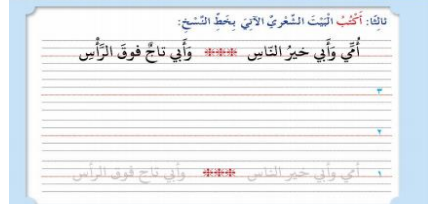 ثالثًا: أَكْتُبُ الْبَيْتَ الشِّعْرِيَّ الآتِيَ بِخَطِّ النَّسْخِ:
أُمِّي وَأَبِي خَيرُ النّاسِ *** وَأَبِي تاجٌ فَوقَ الرَّأْسِ
٣
٢
١ أمي وأبي خير الناس *** وأبي تاج فوق الرأس